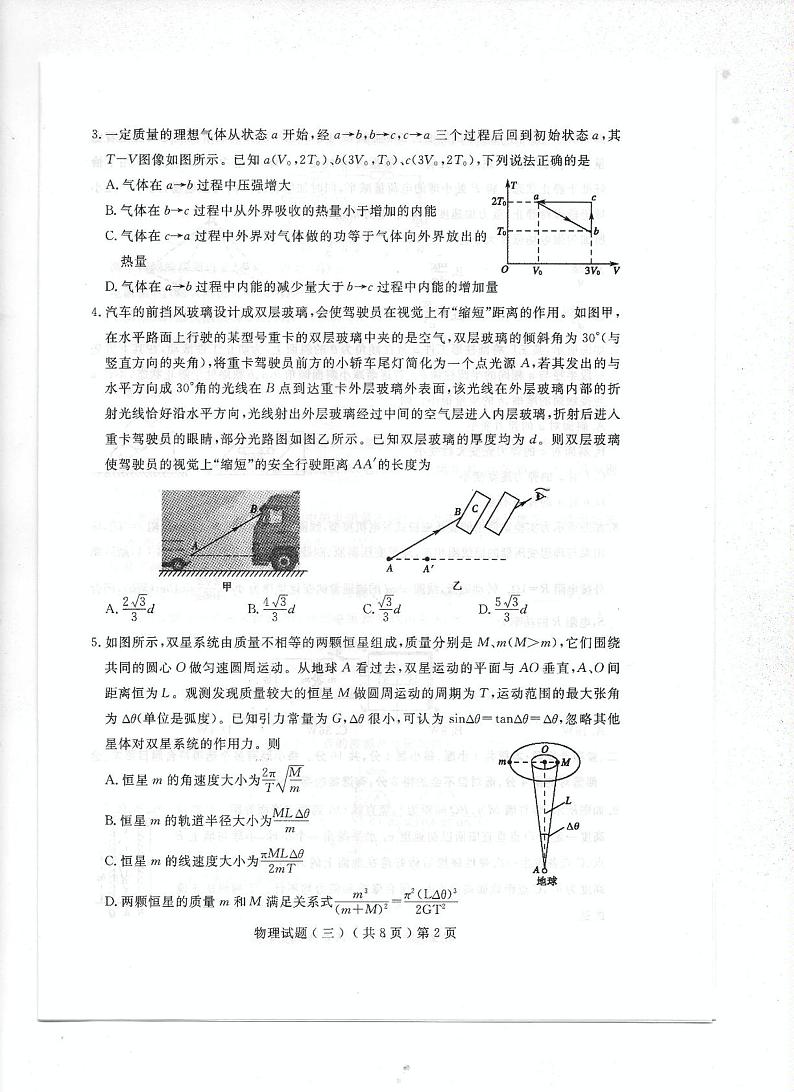 3.一定质量的理想气体从状态 a 开始,经 a→b,b→c,c→a 三个过程后回到初始状态 a,其
T-V图像如图所示。已知 a(V₀,2T₀)、b(3V₀,T₀)、c(3V₀,2T₀),下列说法正确的是
A.气体在 a→b 过程中压强增大
B.气体在 b→c 过程中从外界吸收的热量小于增加的内能
C.气体在 c→a 过程中外界对气体做的功等于气体向外界放出的
热量
D.气体在 a→b 过程中内能的减少量大于 b→c 过程中内能的增加量
T
2T₀
a
c
T₀
b
O
V₀
3V₀
V
4.汽车的前挡风玻璃设计成双层玻璃,会使驾驶员在视觉上有“缩短”距离的作用。如图甲,
在水平路面上行驶的某型号重卡的双层玻璃中夹的是空气,双层玻璃的倾斜角为 30°(与
竖直方向的夹角),将重卡驾驶员前方的小轿车尾灯简化为一个点光源 A,若其发出的与
水平方向成 30°角的光线在 B 点到达重卡外层玻璃外表面,该光线在外层玻璃内部的折
射光线恰好沿水平方向,光线射出外层玻璃经过中间的空气层进入内层玻璃,折射后进入
重卡驾驶员的眼睛,部分光路图如图乙所示。已知双层玻璃的厚度均为 d。则双层玻璃
使驾驶员的视觉上“缩短”的安全行驶距离 AA′的长度为
B
A
甲
B
C
A
A′
乙
A.2√3/3 d
B.4√3/3 d
C.√3/3 d
D.5√3/3 d
5.如图所示,双星系统由质量不相等的两颗恒星组成,质量分别是 M、m(M>m),它们围绕
共同的圆心 O 做匀速圆周运动。从地球 A 看过去,双星运动的平面与 AO 垂直,A、O 间
距离恒为 L。观测发现质量较大的恒星 M 做圆周运动的周期为 T,运动范围的最大张角
为 Δθ(单位是弧度)。已知引力常量为 G,Δθ 很小,可认为 sinΔθ=tanΔθ=Δθ,忽略其他
星体对双星系统的作用力。则
A.恒星 m 的角速度大小为2π/T √(M/m)
B.恒星 m 的轨道半径大小为MLΔθ/m
C.恒星 m 的线速度大小为πMLΔθ/2mT
D.两颗恒星的质量 m 和 M 满足关系式m³/(m+M)²=π²(LΔθ)³/2GT²
O
m
M
L
Δθ
A
地球
物理试题(三)(共8页)第2页